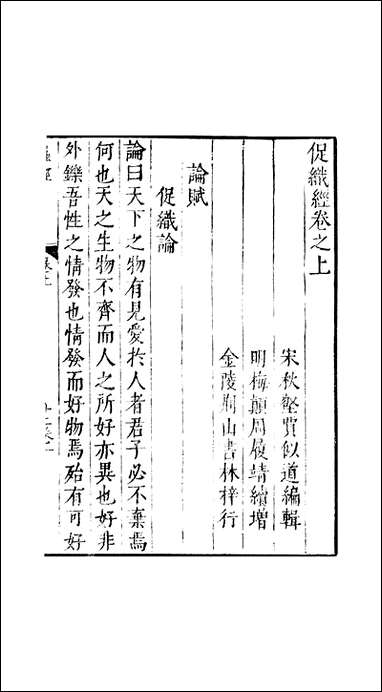 促織經卷之上
宋秋壑賈似道編輯
明梅顛周履靖續增
金陵荆山書林梓行
論賦
促織論
論曰天下之物有見愛於人者君子必不棄焉
何也天之生物不齊而人之所好亦異也好非
外鑠吾性之情發也情發而好物焉殆有可好